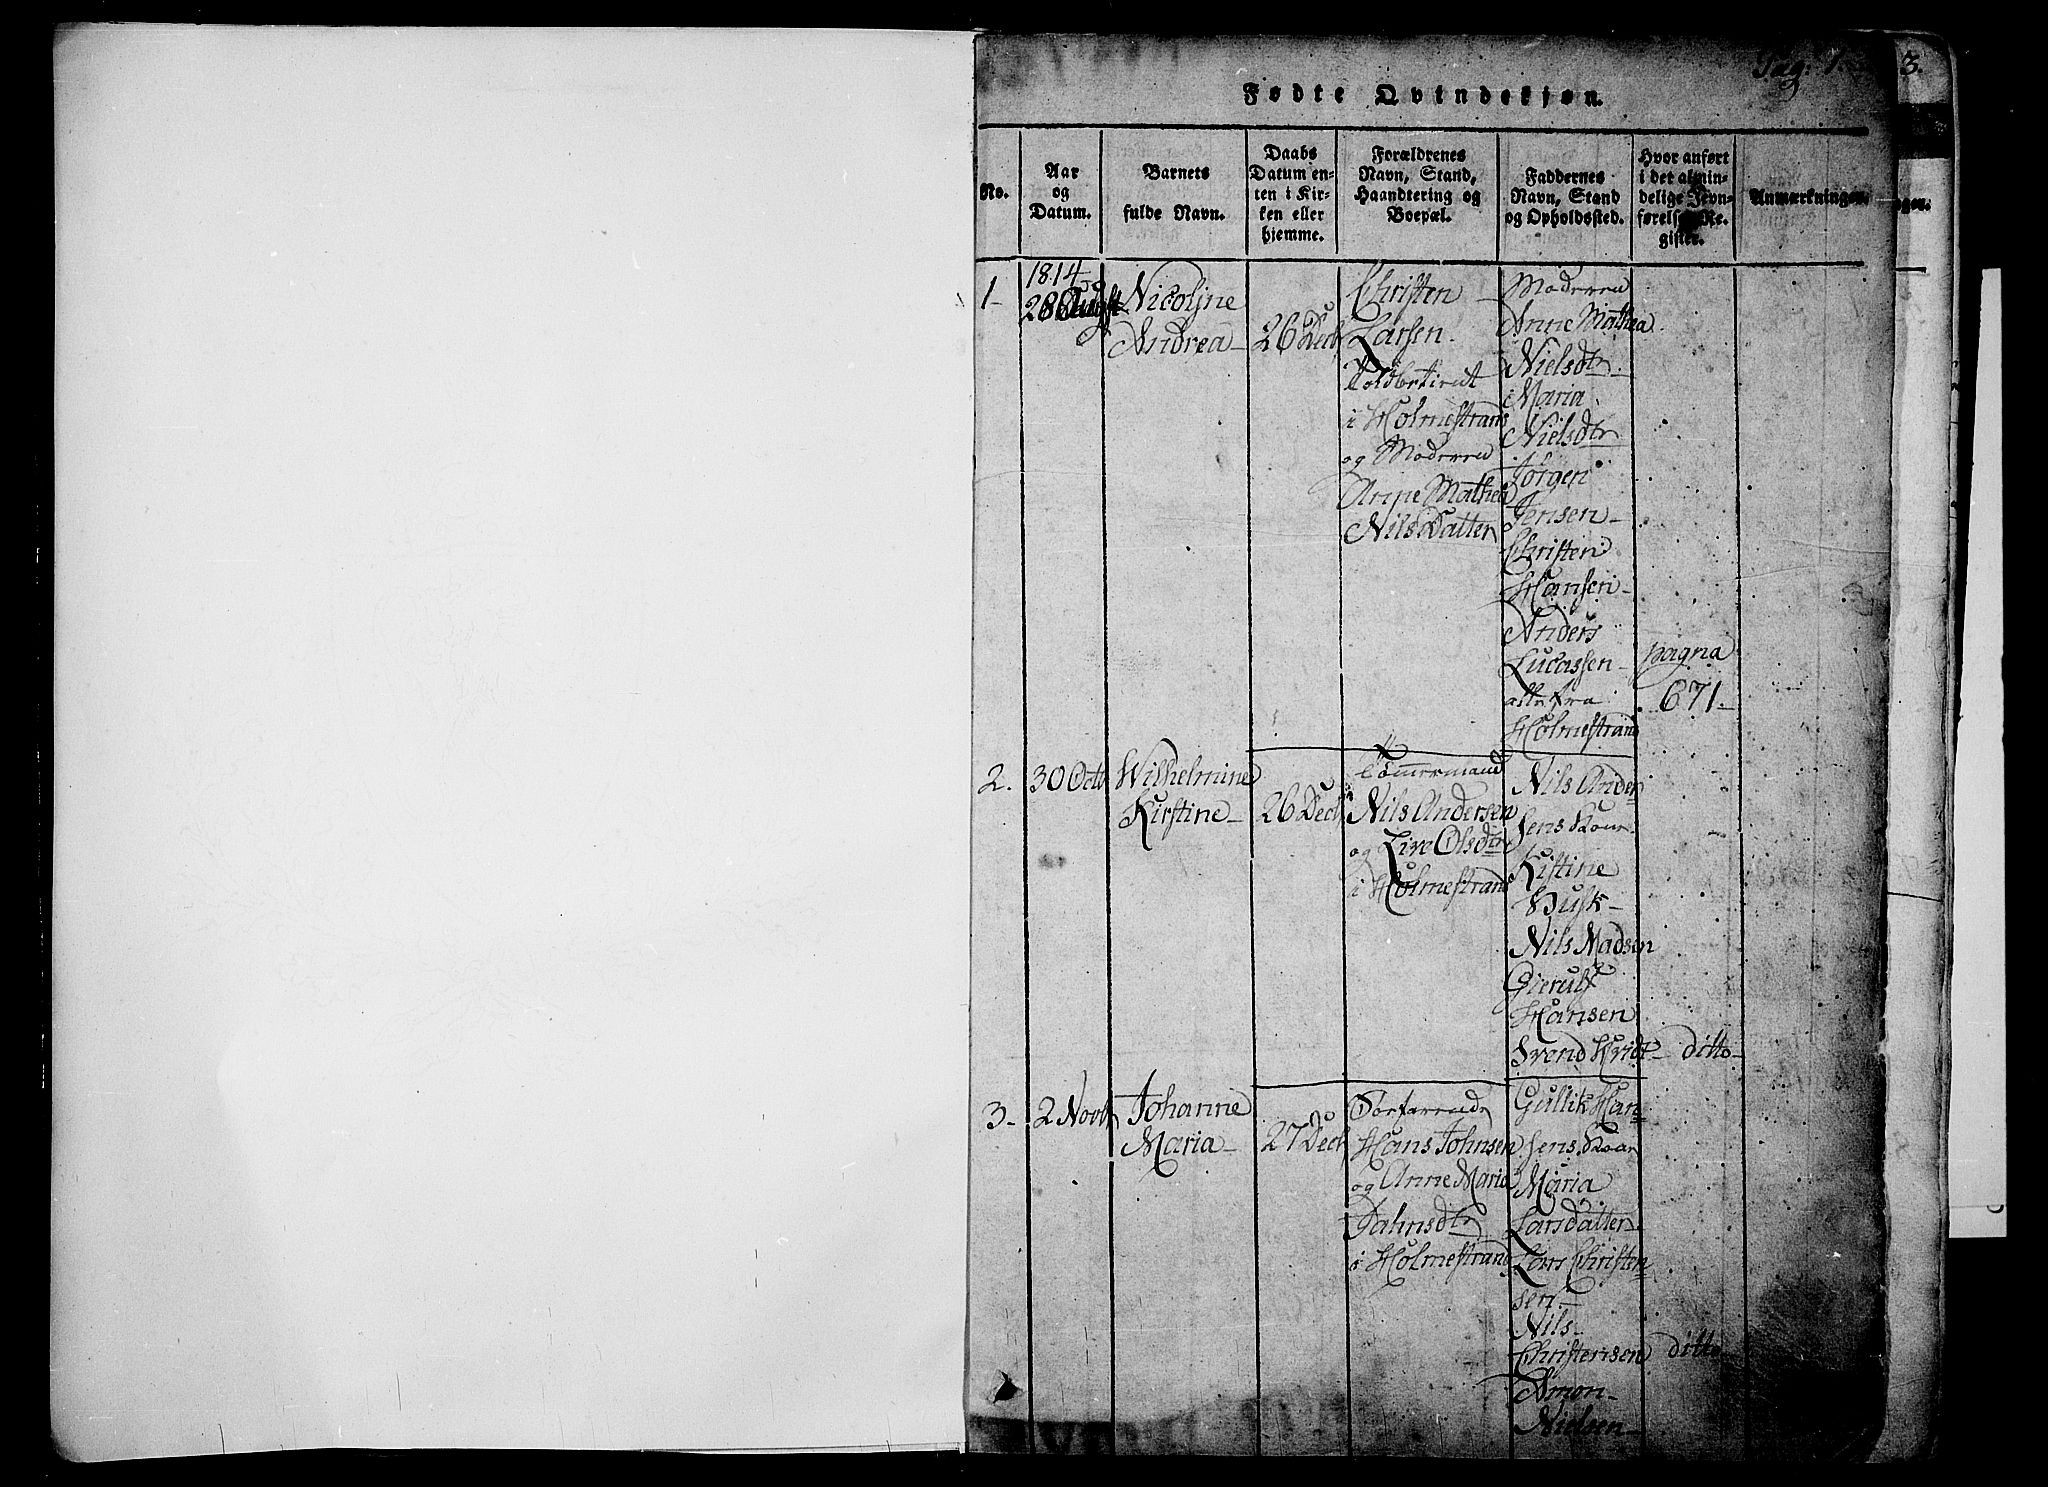 Pag: 1.
3.
Fødte Qvindekjøn.
No.
Aar
og
Datum.
Barnets
fulde Navn.
Daabs
Datum en-
ten i Kir-
ken eller
hjemme.
Forældrenes
Navn, Stand,
Haandtering og
Boepæl.
Faddernes
Navn, Stand
og Opholdssted.
Hvor anført
i det almin-
delige Jevn-
førelses Re-
gister.
Anmærkninger.
1-
1814
28 Augst
Nicoline
Andrea-
26 Decb
Christen
Larsen-
Toldbetient
i Holmestrand
og Moderen
Anne Mathea
Nils Datter
Moderen
Anne Mathea
Nielsdtr
Maria
Nielsdtr
Jørgen
Jensen-
Christen
Hansen-
Anders
Lucassen-
alle fra
Holmestrand
pagna
671-
2.
30 Octb
Wilhelmine
Kirstine-
26 Decb
Tømmermand
Nils Andersen
og Live Olsdtr
i Holmestrand
Nils Ander-
sens Kone-
Kistine
Husk-
Nils Madsen
Gierulf
Hansen
Svend Hvidt-
ditto-
3-
2 Novb
Johanne
Maria-
27 Decb
Søefarende
Hans Johnsen
og Anne Maria
Jahnsdtr
i Holmestrand
Gullik Han-
sens Kone
Maria
Larsdatter-
Lars Christen-
sen-
Nils-
Christensen
Amon-
Nielsen-
ditto-